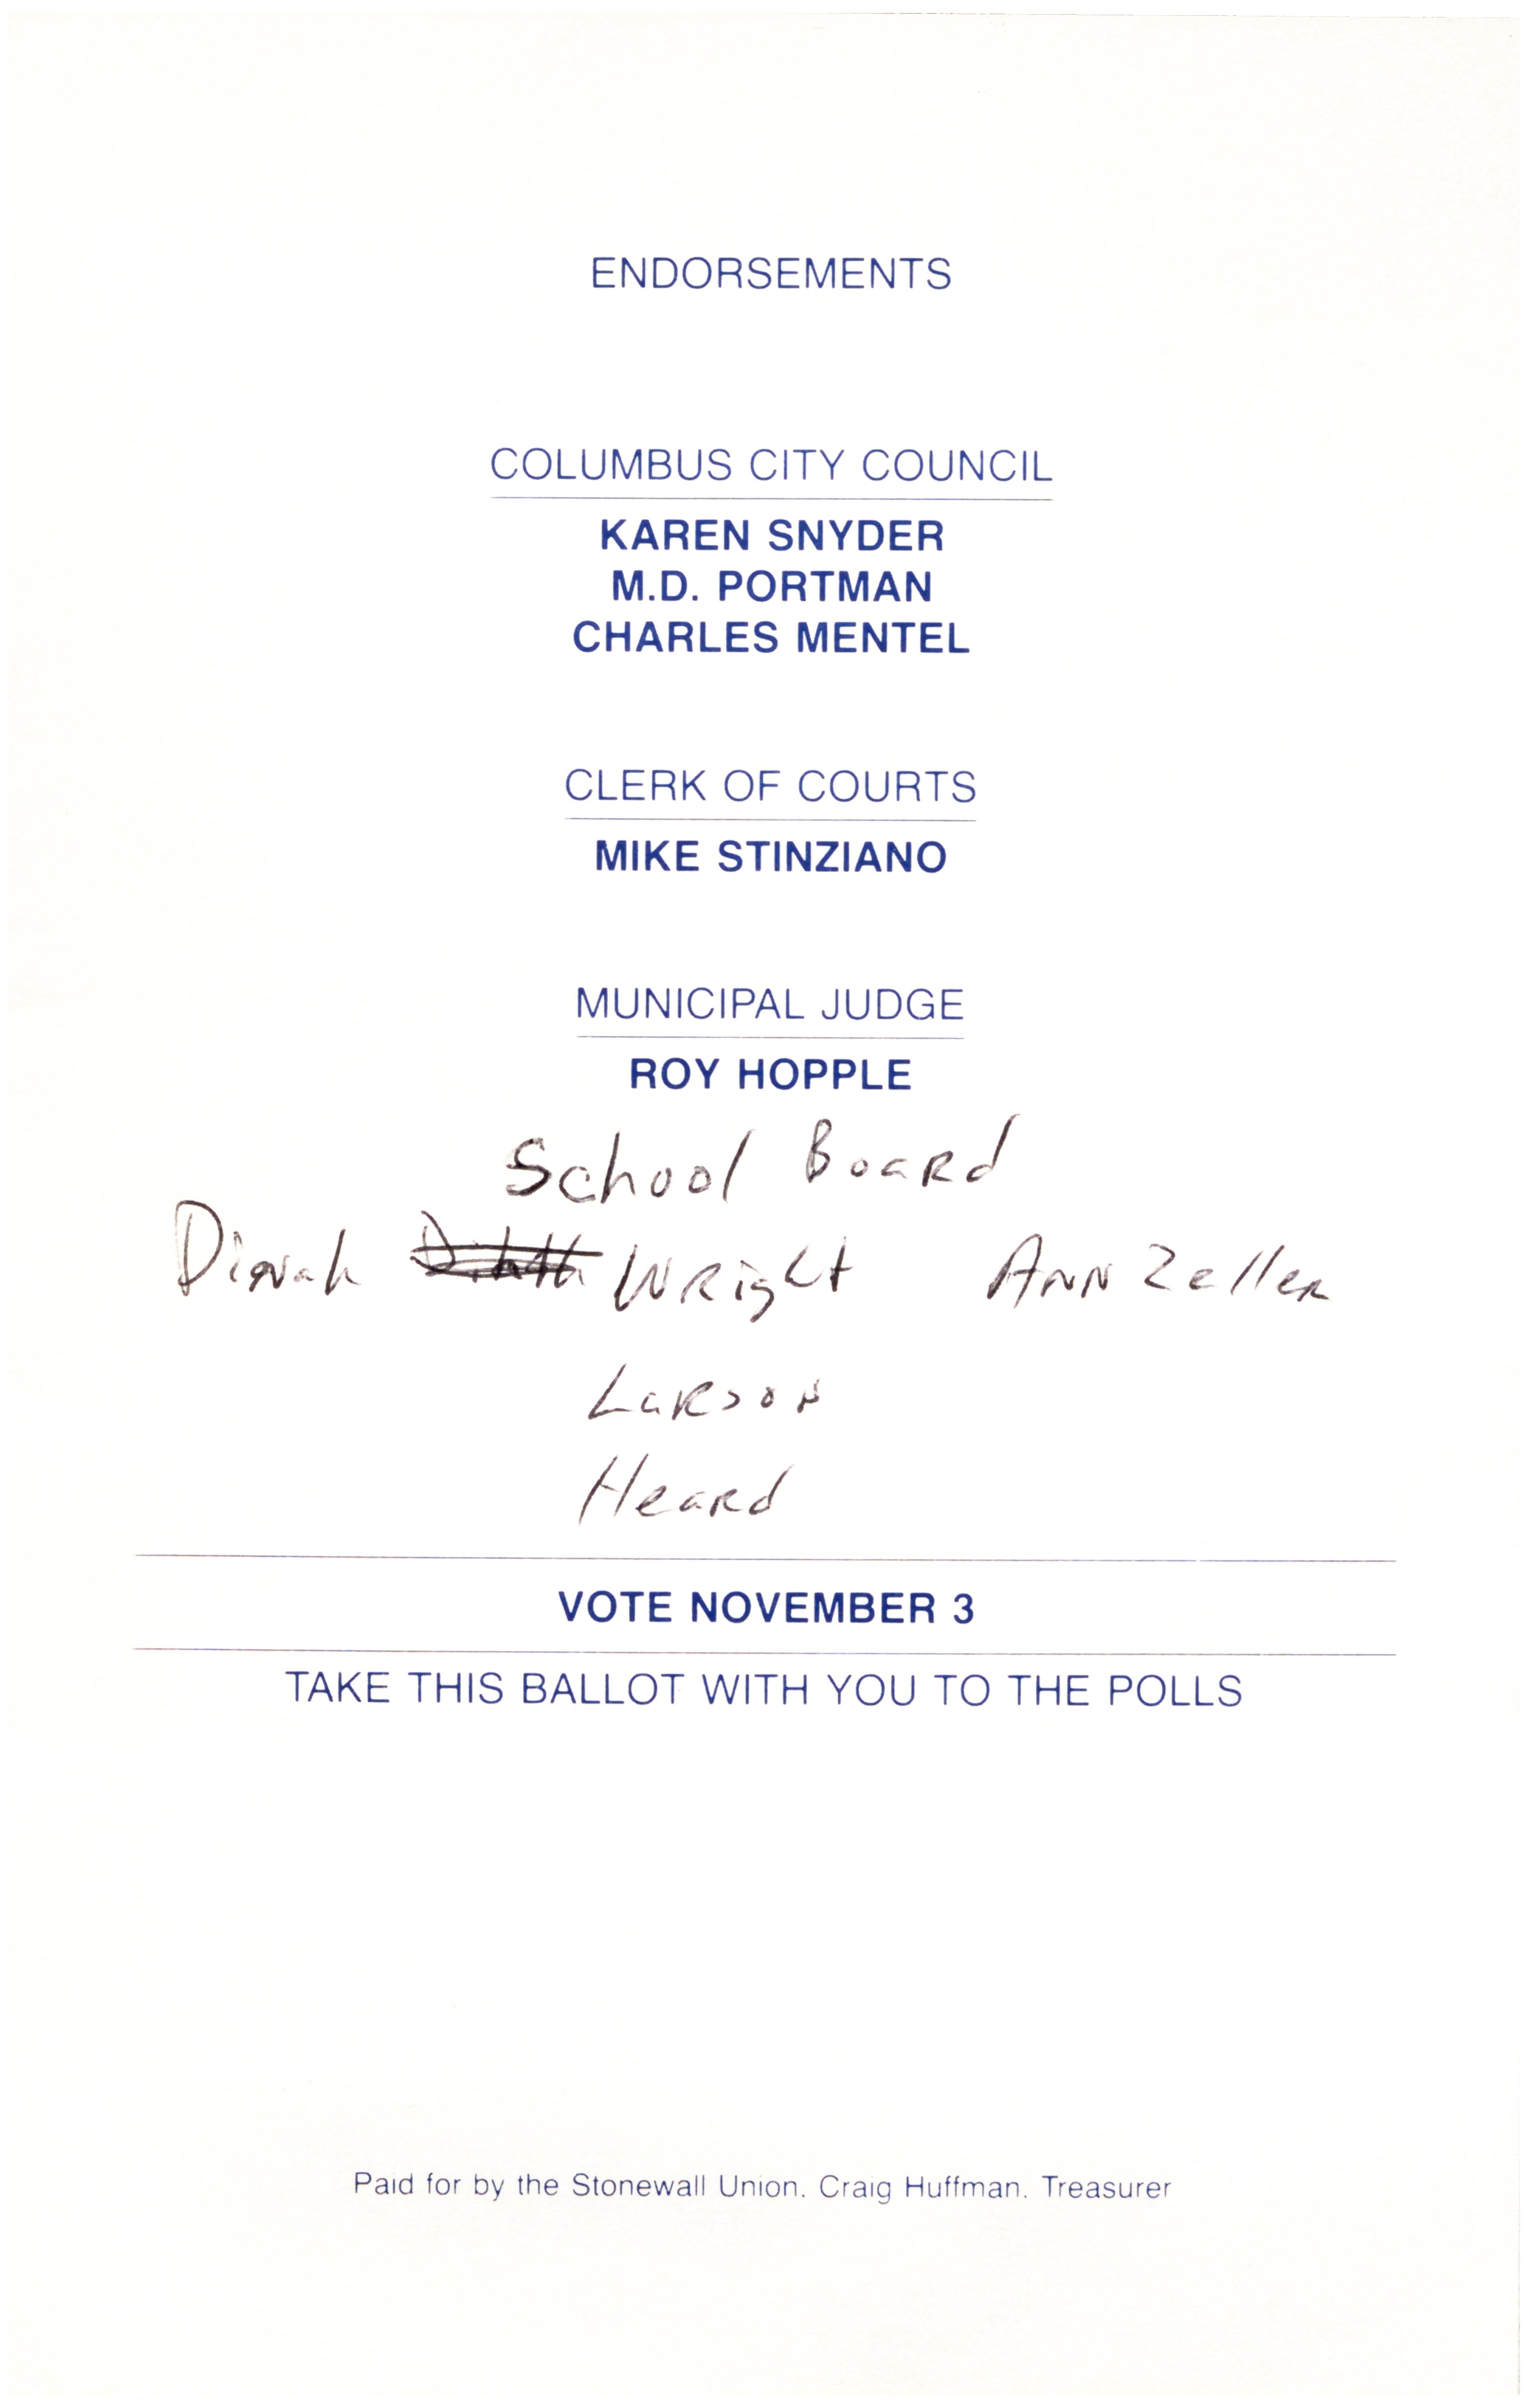 ENDORSEMENTS
COLUMBUS CITY COUNCIL
KAREN SNYDER
M.D. PORTMAN
CHARLES MENTEL
CLERK OF COURTS
MIKE STINZIANO
MUNICIPAL JUDGE
ROY HOPPLE
School Board
Dinah Wright Ann Zeller
Larson
Heard
VOTE NOVEMBER 3
TAKE THIS BALLOT WITH YOU TO THE POLLS
Paid for by the Stonewall Union. Craig Huffman. Treasurer